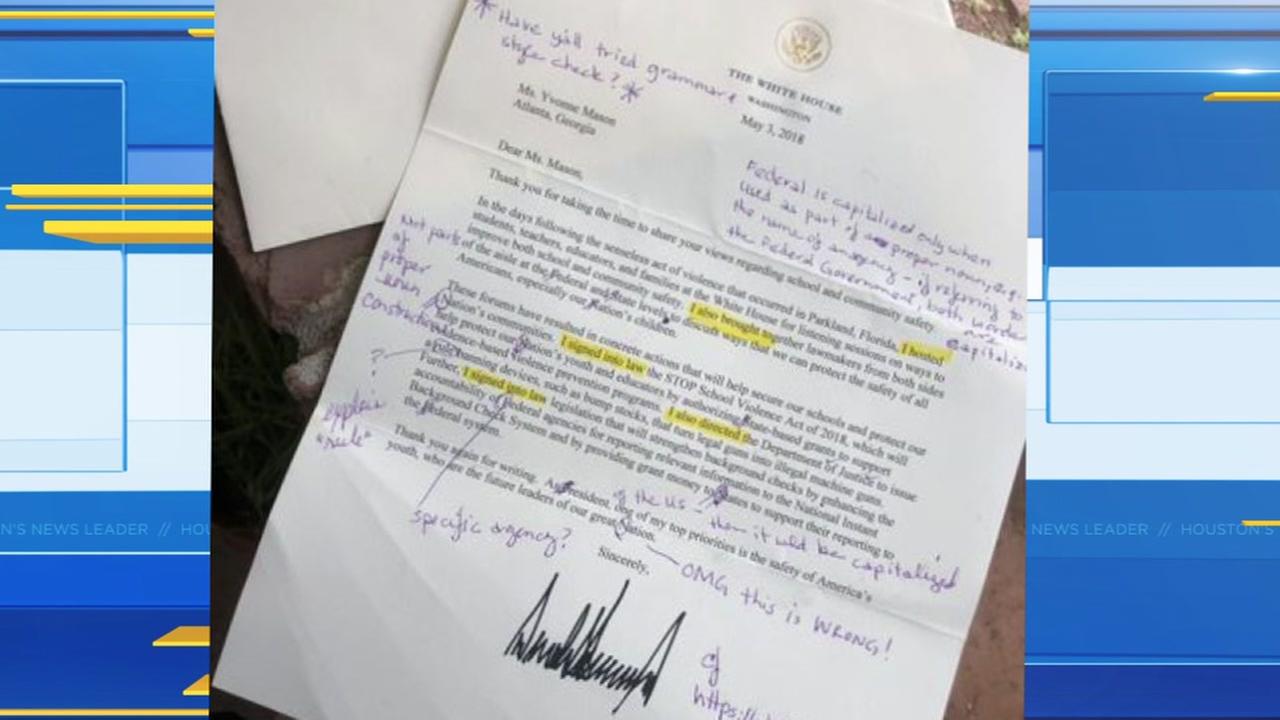 *Have y'all tried grammar &
style check?*
THE WHITE HOUSE
WASHINGTON
May 3, 2018
Ms. Yvonne Mason
Atlanta, Georgia
Dear Ms. Mason,
Thank you for taking the time to share your views regarding school and community safety.
In the days following the senseless act of violence that occurred in Parkland, Florida, I hosted
students, teachers, educators, and families at the White House for listening sessions on ways to
improve both school and community safety. I also brought together lawmakers from both sides
of the aisle at the Federal and State levels to discuss ways that we can protect the safety of all
Americans, especially our Nation's children.
These forums have resulted in concrete actions that will help secure our schools and protect our
Nation's communities. I signed into law the STOP School Violence Act of 2018, which will
help protect our Nation's youth and educators by authorizing State-based grants to support
evidence-based violence prevention programs. I also directed the Department of Justice to issue
a rule banning devices, such as bump stocks, that turn legal guns into illegal machine guns.
Further, I signed into law legislation that will strengthen background checks by enhancing the
accountability of Federal agencies for reporting relevant information to the National Instant
Background Check System and by providing grant money to States to support their reporting to
the Federal system.
Thank you again for writing. As President, one of my top priorities is the safety of America's
youth, who are the future leaders of our great Nation.
Sincerely,
Federal is capitalized only when
used as part of a proper noun, e.g.
the name of an agency - if referring to
the Federal Government, both words
are
capitalized
Not part
of
proper
noun
construction
?
explain
"rule"
of the US - then it wld be capitalized
specific agency?
OMG this is WRONG!
cf
https://
N'S NEWS LEADER // HOU
NEWS LEADER // HOUSTON'S